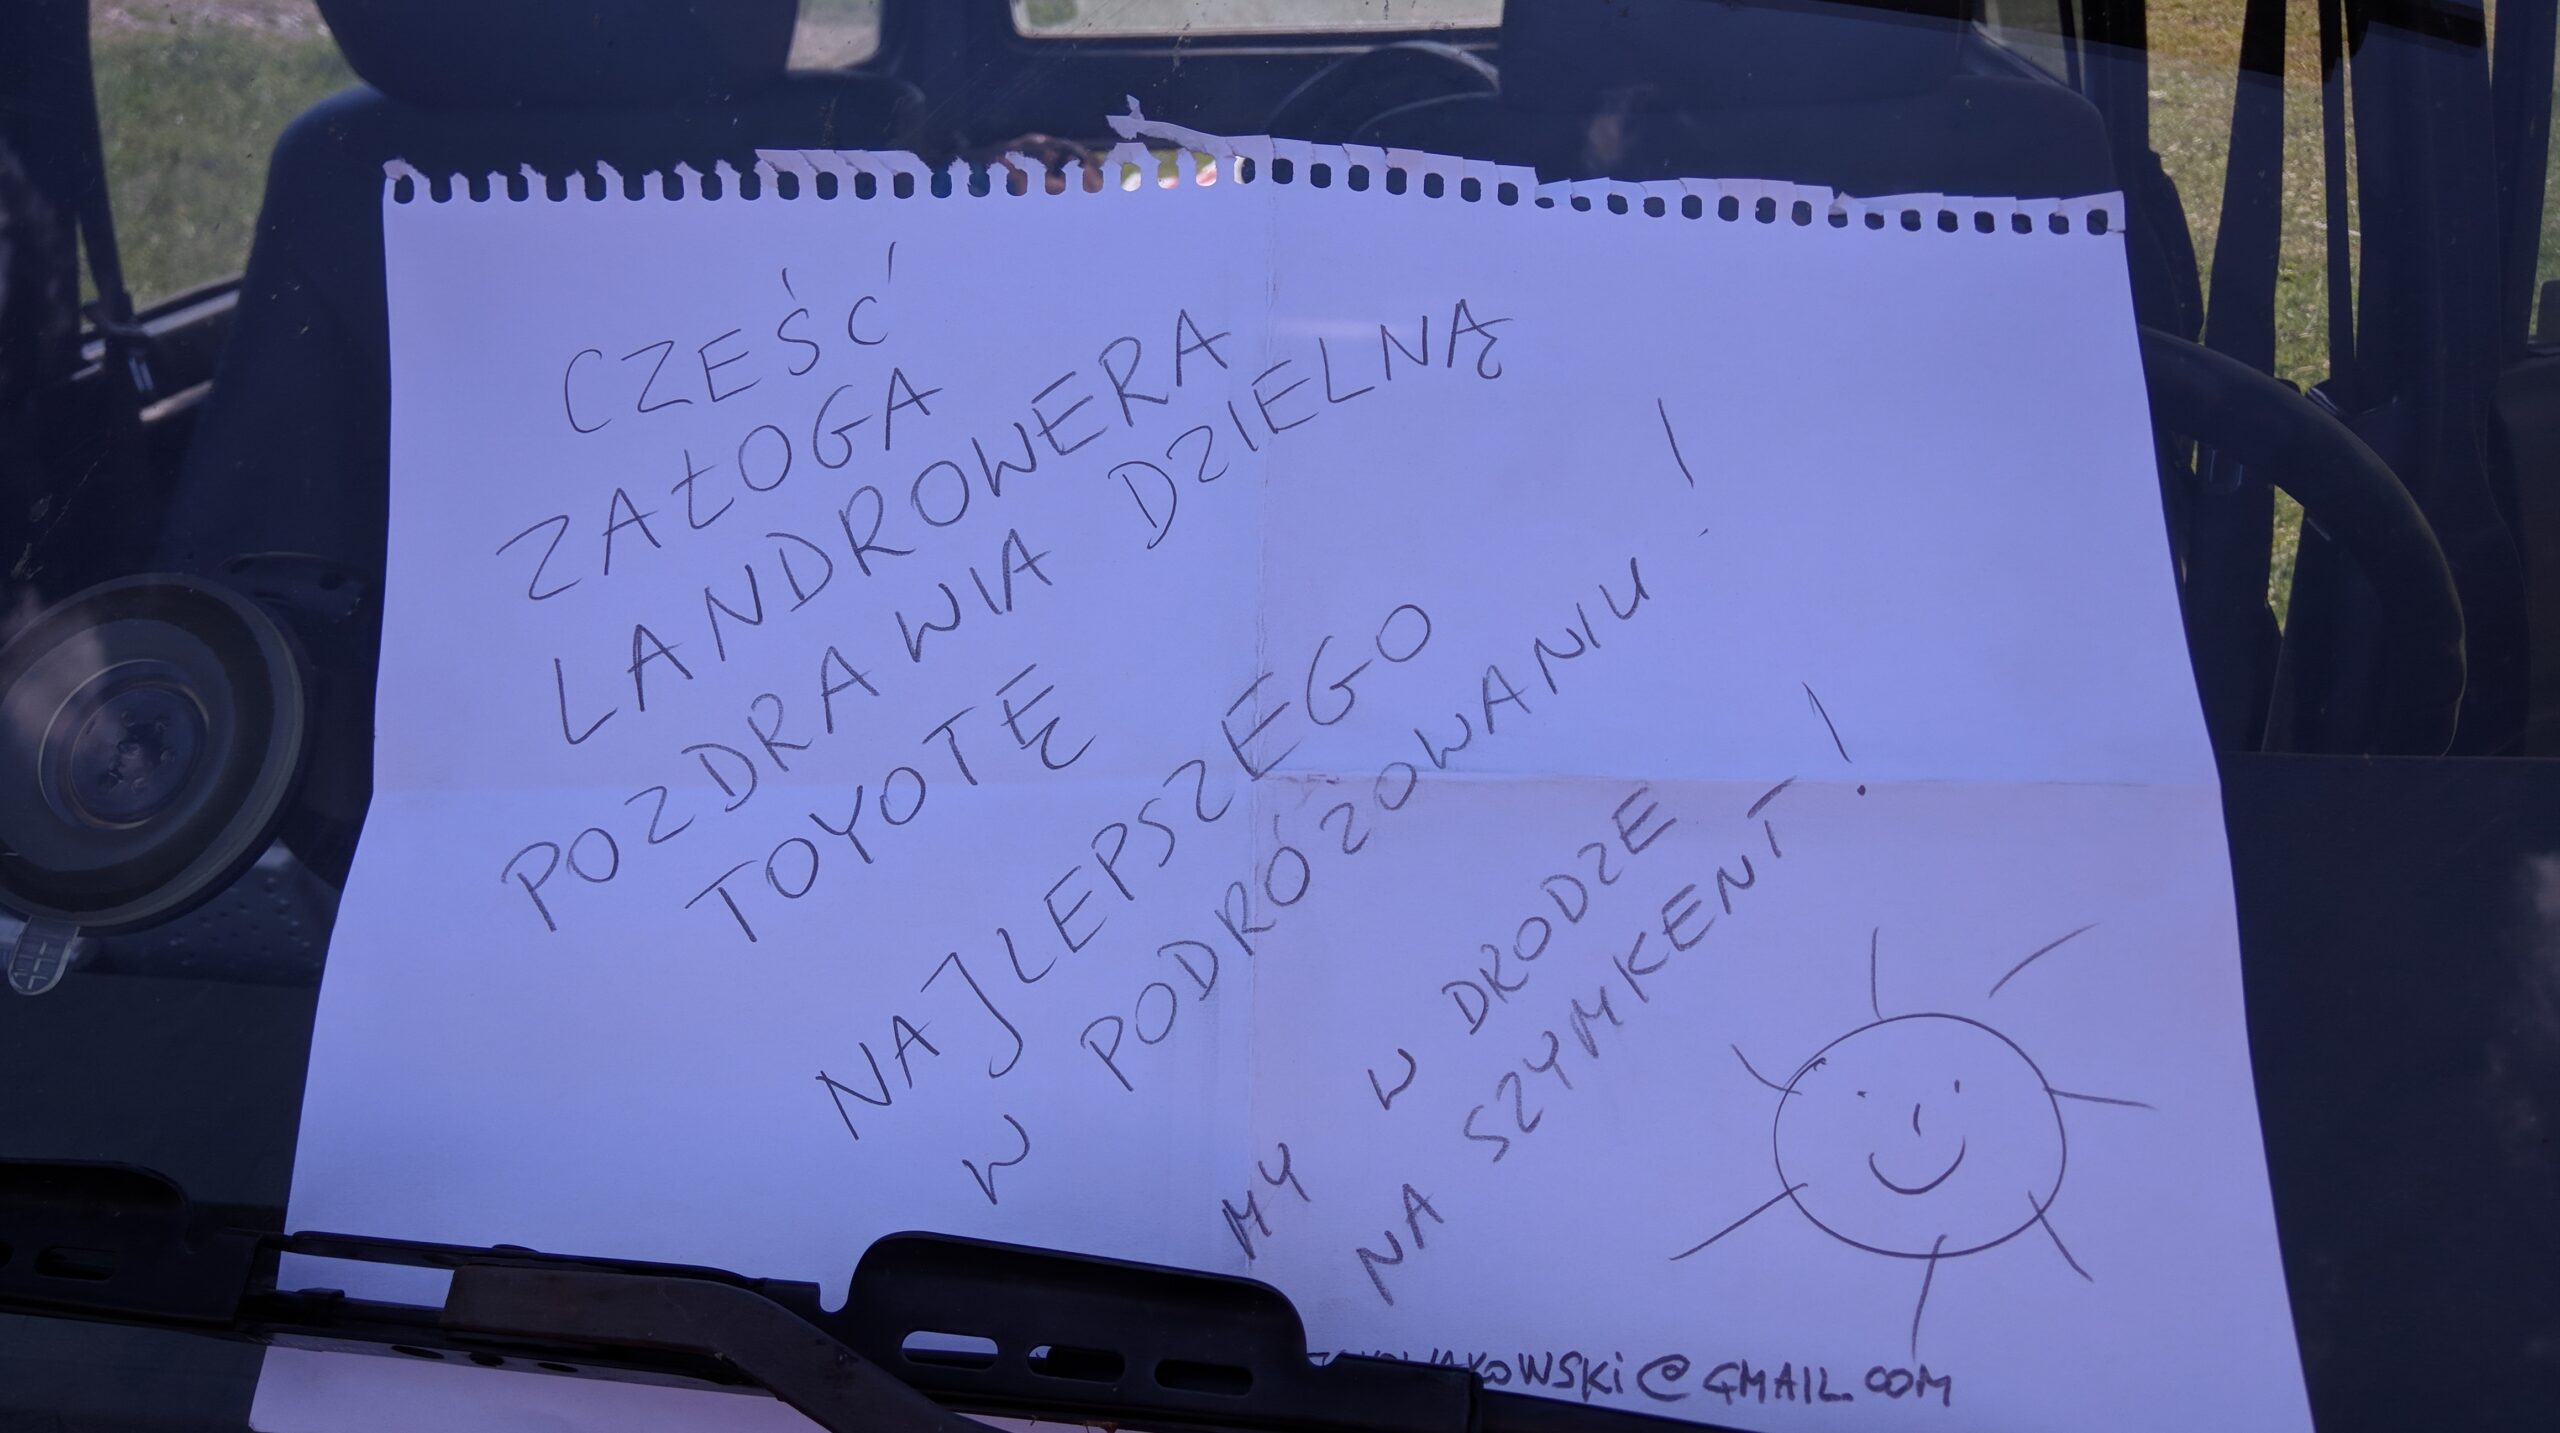 CZEŚĆ
ZAŁOGA
LANDROWERA
POZDRAWIA DZIELNĄ
TOYOTĘ
NAJLEPSZEGO
W PODRÓŻOWANIU!
MY W DRODZE
NA SZYMKENT!